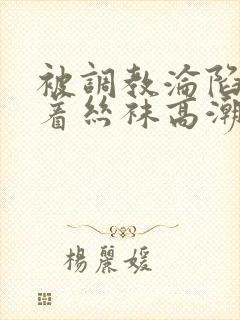 被調教淪陷
著絲袜高潮
楊麗媛